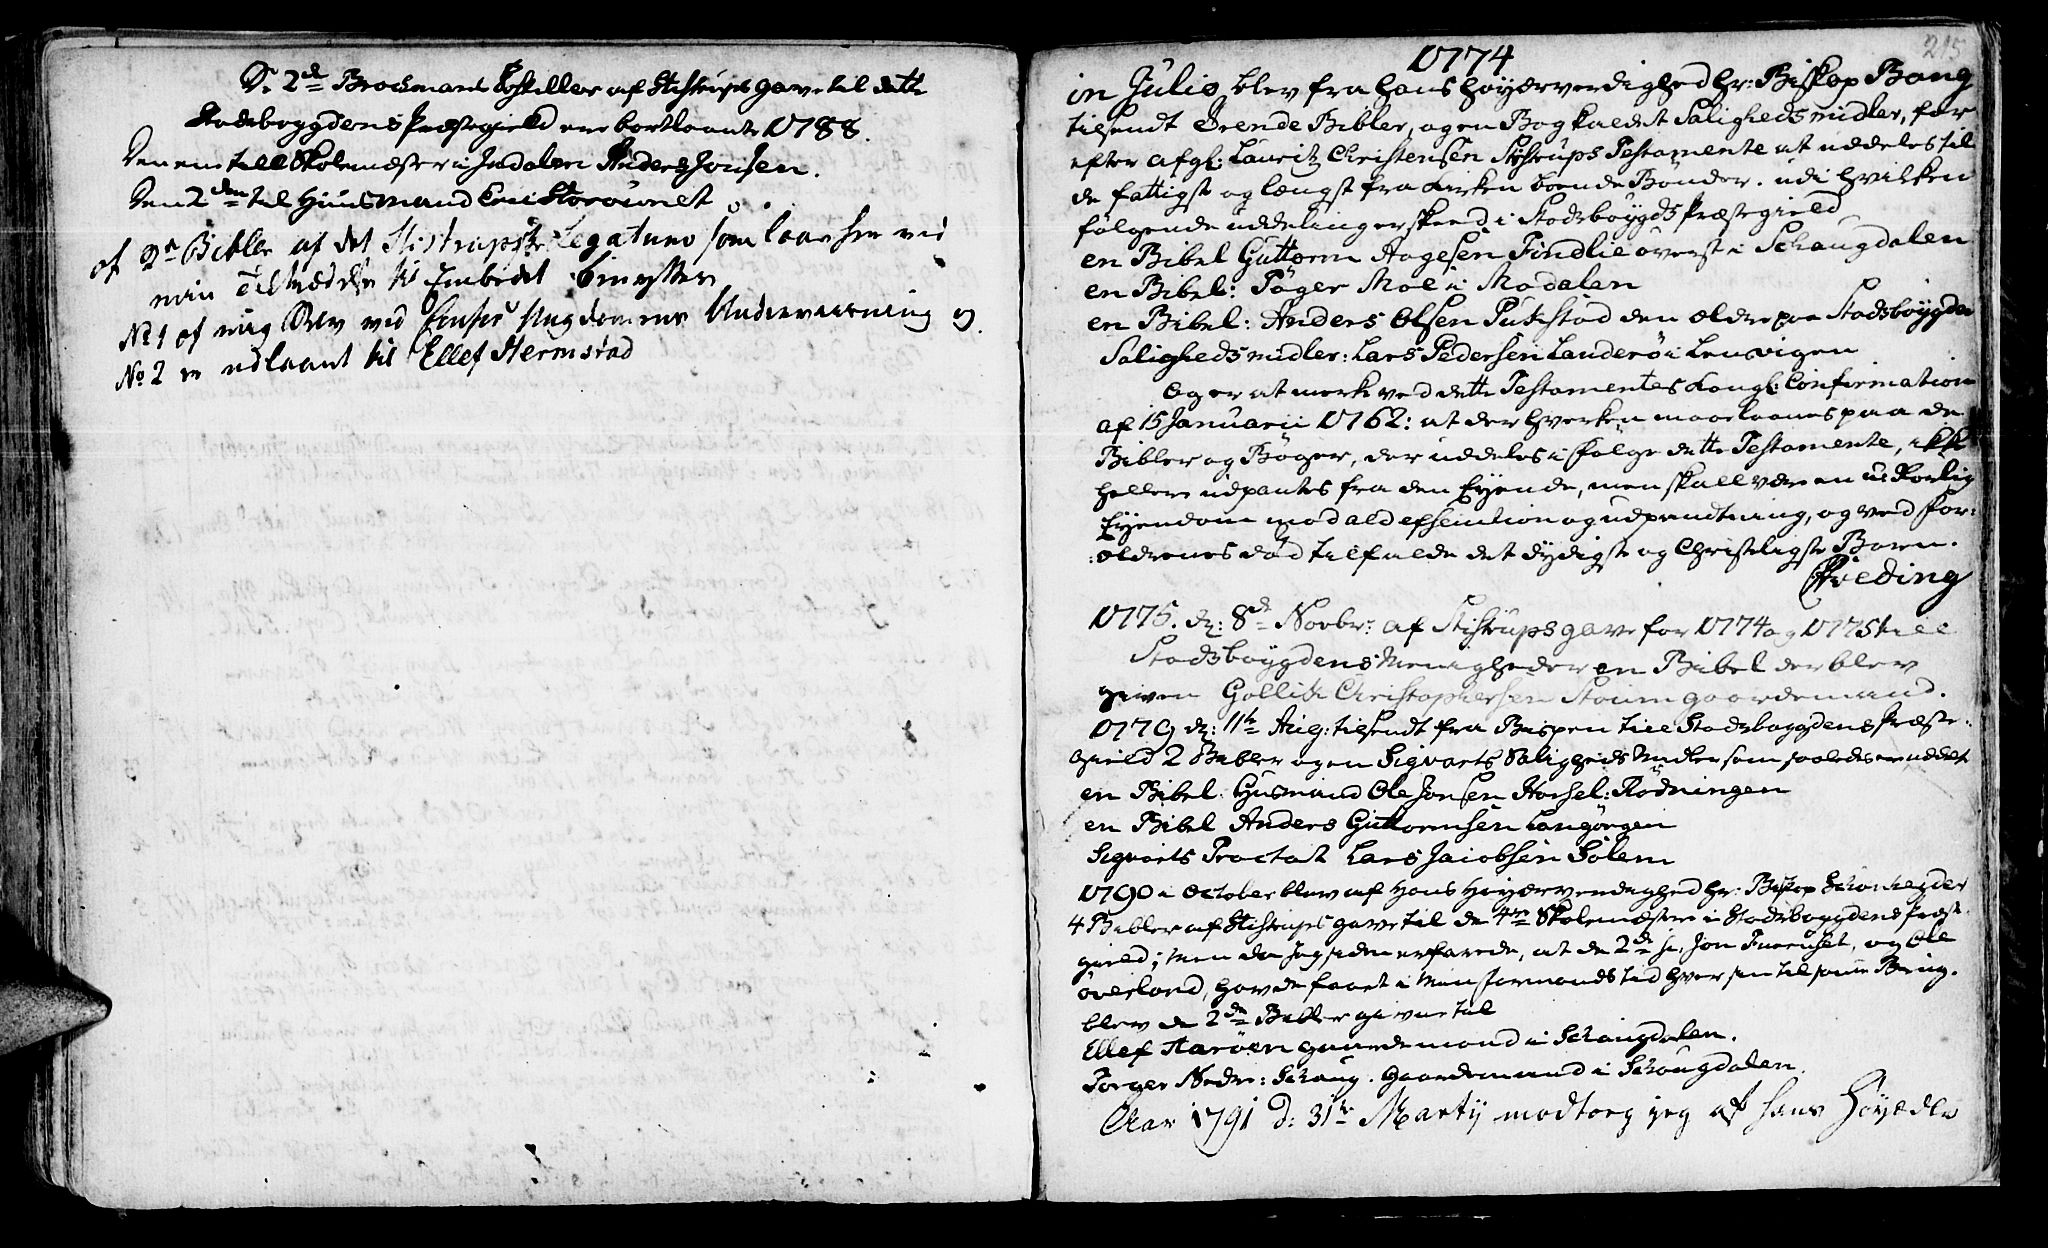 De 2de Brochmans Postiller af Stistrups gave til dette
Stadsboygdens Præstegield ere bortlaante 1788.
Den ene till Skolemæster i Indalen Anders Jonsen.
Den 2den til Huusmand Eric Storøunet
af 2de Bibler af det Stistrupske Legatum som laae her ved
min Tiltrædelse til Embedet benyttes
No 1 af mig Selv ved Ungdomens Underviisning og
No 2 er udlaant til Ellef Hermstad
215
1774
in Julio blev fra hans høyærverdighed Hr: Biskop Bang
tilsendt Trende Bibler, og en Bog kaldet Salighedsmidler, for
efter afgl: Lauritz Christensen Stistrups Testamente at uddeles til
de fattigste og længst fra Kirken boende Bønder. udi hvilken
følgende uddelinger skeed i Stadsboygds Præstegield
en Bibel Guttorm Aagesen Findlie øverst i Schaugdalen
en Bibel: Tøger Moe i Modalen
en Bibel: Anders Olsen Pukstad den ældre paa Stadsboygden
Salighedsmidler: Lars Pedersen Landerø i Lensvigen
Og er at merke ved dette Testamentes Kongl: Confirmation
af 15 Januarii 1762: at der hverken maae laanes paa de
Bibler og Bøger, der uddeles i følge dette Testamente, ikke
heller udpantes fra den Eyende, men skall være en uskorlig
Eyendom mod ald Execution og udpandtning, og ved For:
:ældrenes død tilfalde det dydigste og Christeligste Barn.
Hveding
1775. d: 8de Novbr: af Stistrups gave for 1774 og 1775 till
Stadsboygdens Menigheder en Bibel der blev
given Gollich Christophersen Stoum gaardemand.
1779 d: 11te Aug: tilsendt fra Bispen till Stadsboygdens Præste:
gield 2 Bibler og en Sigvarts Saligheds Midler som saaledes er uddelt
en Bibel. Husmand Ole Jonsen Horsel: Rødningen
en Bibel Anders Guttormsen Langørgen
Sigvarts Tractat Lars Jacobsen Solem
1790 i October blev af Hans Høyærverdighed Hr: Biskop Schønheyder
4 Bibler af Stistrups gave til de 4re Skolemæstere i Stadsboygdens Præste
gield; Men da Jeg siden erfarede, at de 2de sc. Jon Furuset, og Ole
Øverland, havde faaet i Min formands tid hver sin til samme Brug.
blev de 2de Bibler givne til
Ellef Harven gaardemand i Schaugdalen.
Torger Nedre: Schaug. Gaardemand i Schaugdalen.
Aar 1791 d: 31te Martij modtog jeg af hans Høyædle